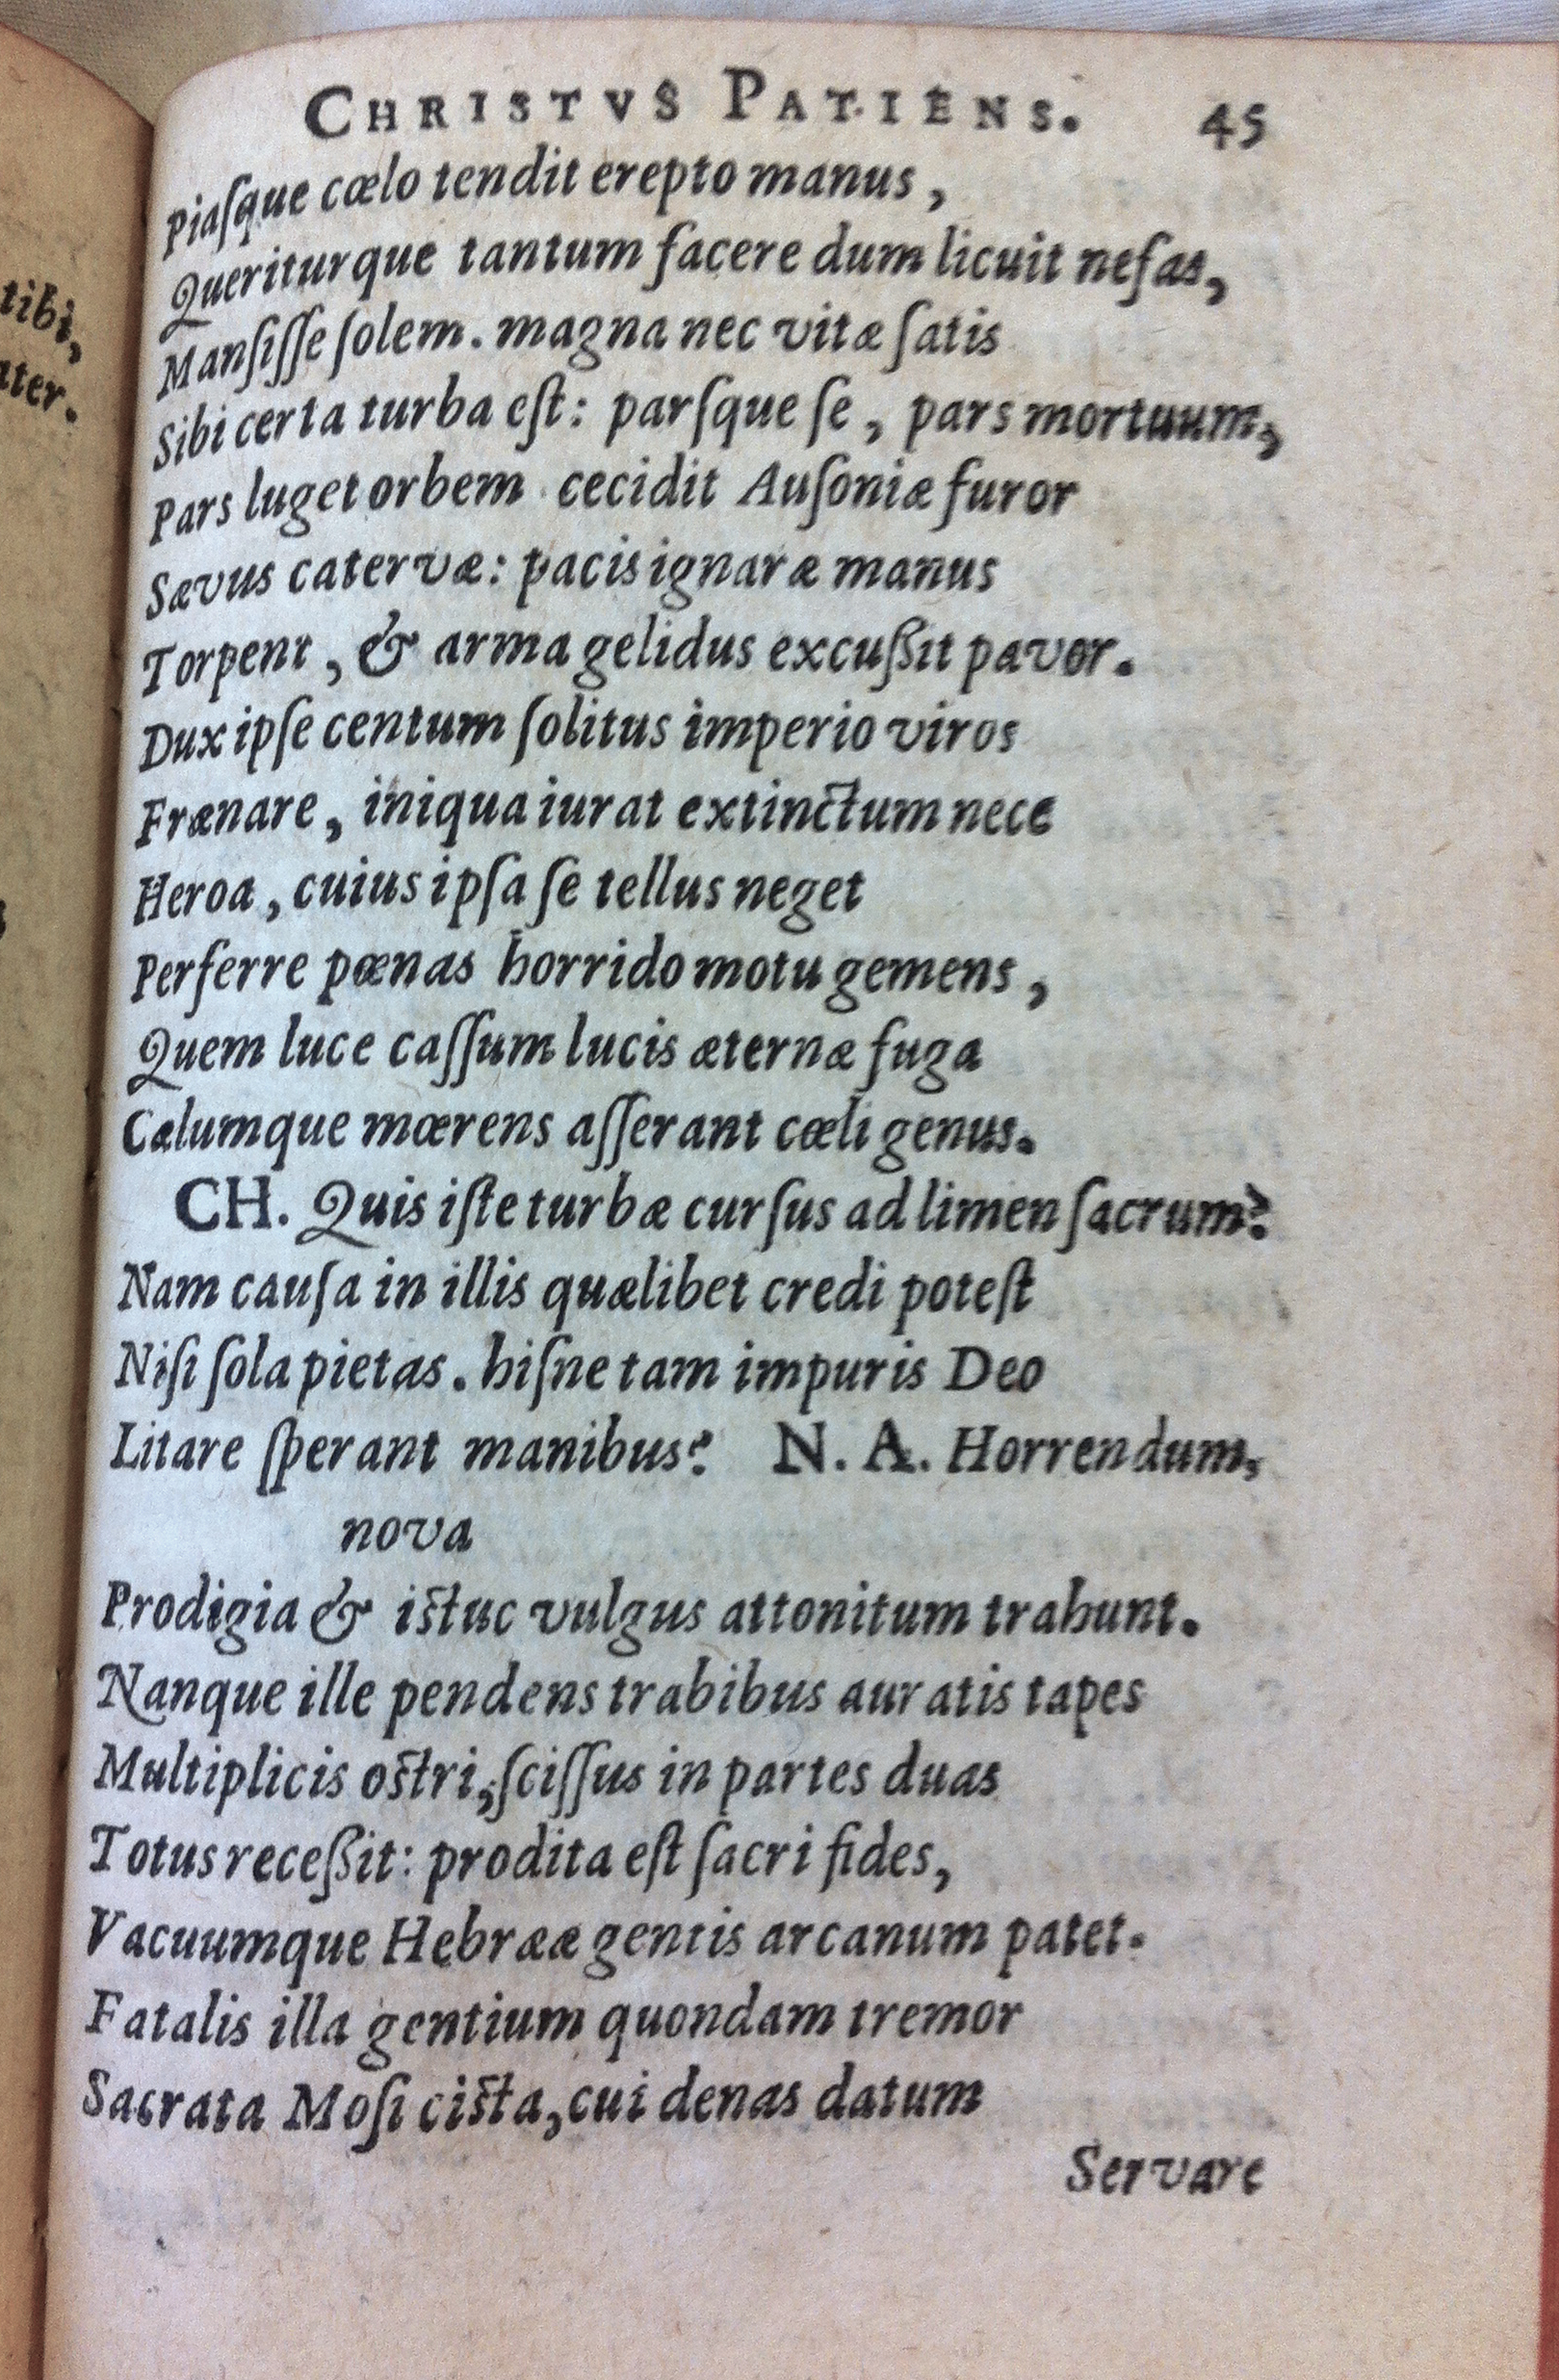 CHRISTVS PATIENS. 45
Piaſque cœlo tendit erepto manus,
Queriturque tantum facere dum licuit nefas,
Manſiſſe ſolem. magna nec vitæ ſatis
Sibi certa turba eſt: parſque ſe, pars mortuum,
Pars luget orbem cecidit Auſoniæ furor
Sævus catervæ: pacis ignaræ manus
Torpent, & arma gelidus excußit pavor.
Dux ipſe centum ſolitus imperio viros
Frænare, iniqua iurat extinctum nece
Heroa, cuius ipſa ſe tellus neget
Perferre pœnas horrido motu gemens,
Quem luce caſſum lucis æternæ fuga
Cælumque mœrens aſſerant cœli genus.
CH. Quis iſte turbæ curſus ad limen ſacrum?
Nam cauſa in illis quælibet credi poteſt
Niſi ſola pietas. hiſne tam impuris Deo
Litare ſperant manibus? N. A. Horrendum,
nova
Prodigia & iſtuc vulgus attonitum trahunt.
Nanque ille pendens trabibus auratis tapes
Multiplicis oſtri, ſciſſus in partes duas
Totus receßit: prodita eſt ſacri fides,
Vacuumque Hebrææ gentis arcanum patet.
Fatalis illa gentium quondam tremor
Sacrata Moſi ciſta, cui denas datum
Servare
tibi,